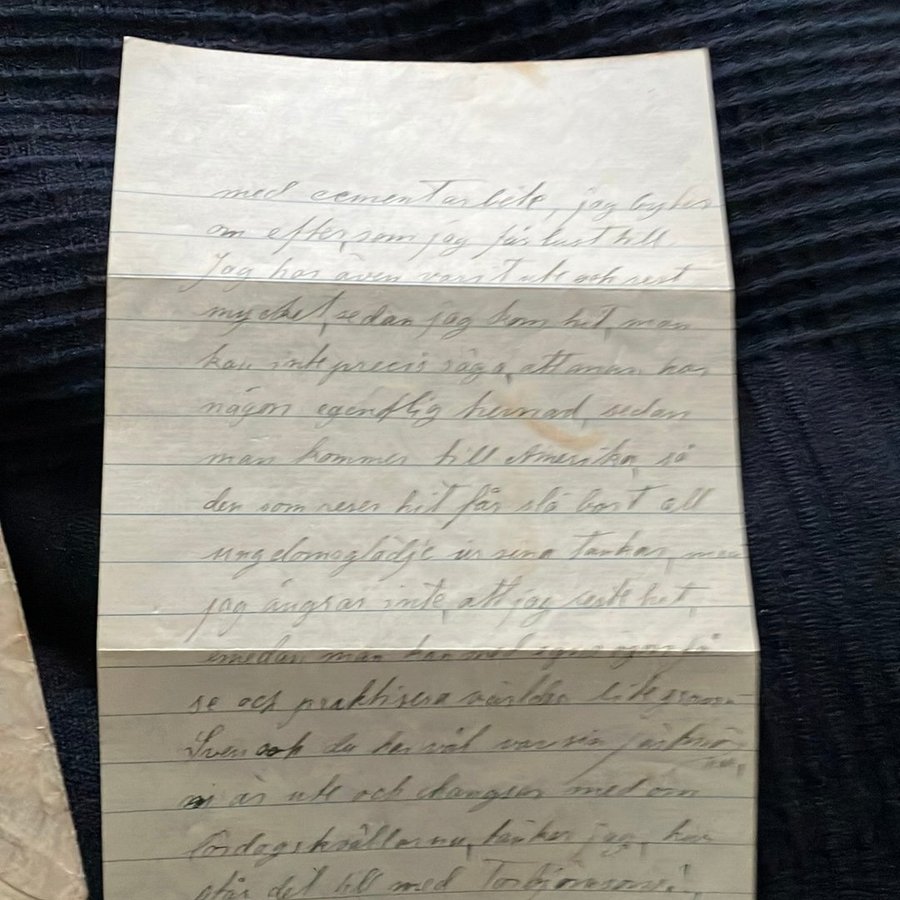 med cementarbete, jag byter
om eftersom jag får lust till
Jag har även varit ute och rest
mycket, sedan jag kom hit, man
kan inte precis säga, att man har
någon egentlig hemad, sedan
man kommer till Amerika, så
den som reser hit får slå bort all
ungdomsglädje ur sina tankar, men
jag ångrar inte, att jag reste hit,
emedan man kan med egna ögon få
se och praktisera världen lite
Sven och du har väl var sin
ni är ute och med om
lördagskvällarna, tänker jag, hur
står det till med